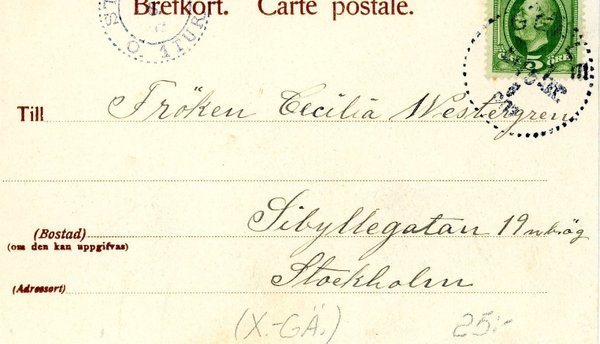 Brefkort. Carte postale.
5 ÖRE
O. 1 TUR
Till Fröken Cecilia Westergren
(Bostad) Sibyllegatan 19
(om den kan uppgifvas)
(Adressort) Stockholm
(X.-GÄ.) 25:-